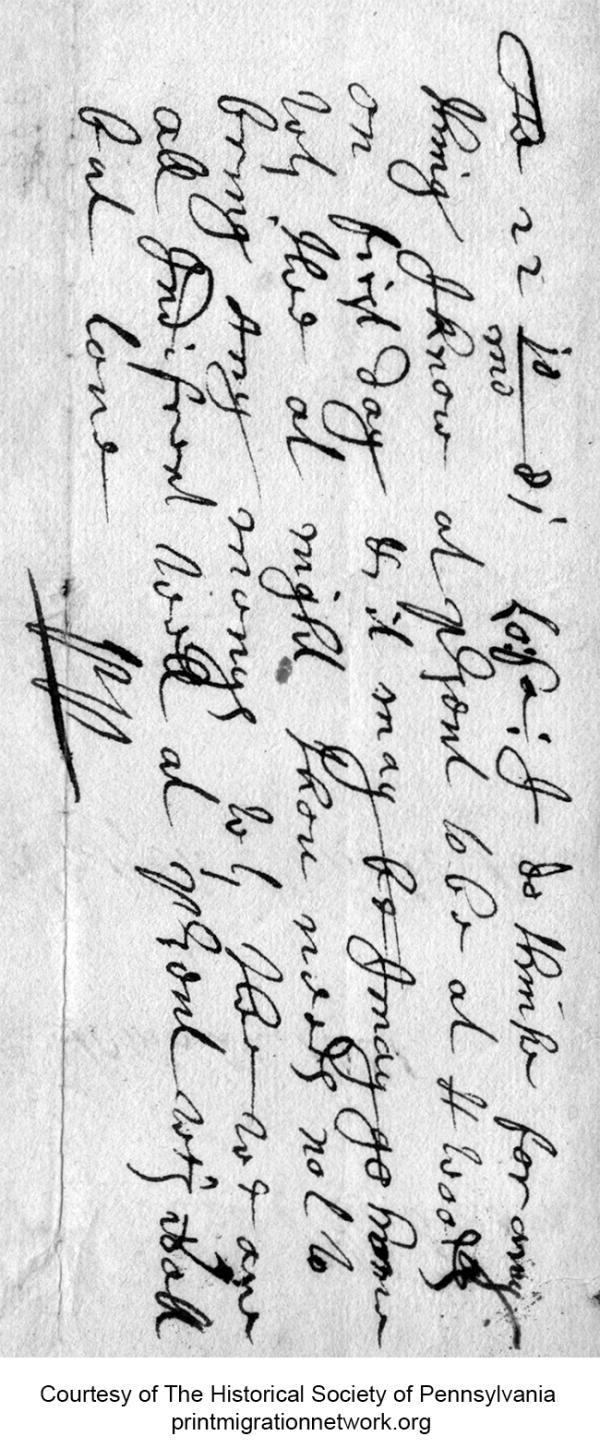 The 22 10 mo 81
I do thinke for any
thing I know at psent to be at H woods
on first day & it may be I may go home
wth thee at night thou needs not to
bring any monys wth thee we are
all Indifrent well at psent wth dall
but love
Courtesy of The Historical Society of Pennsylvania
printmigrationnetwork.org